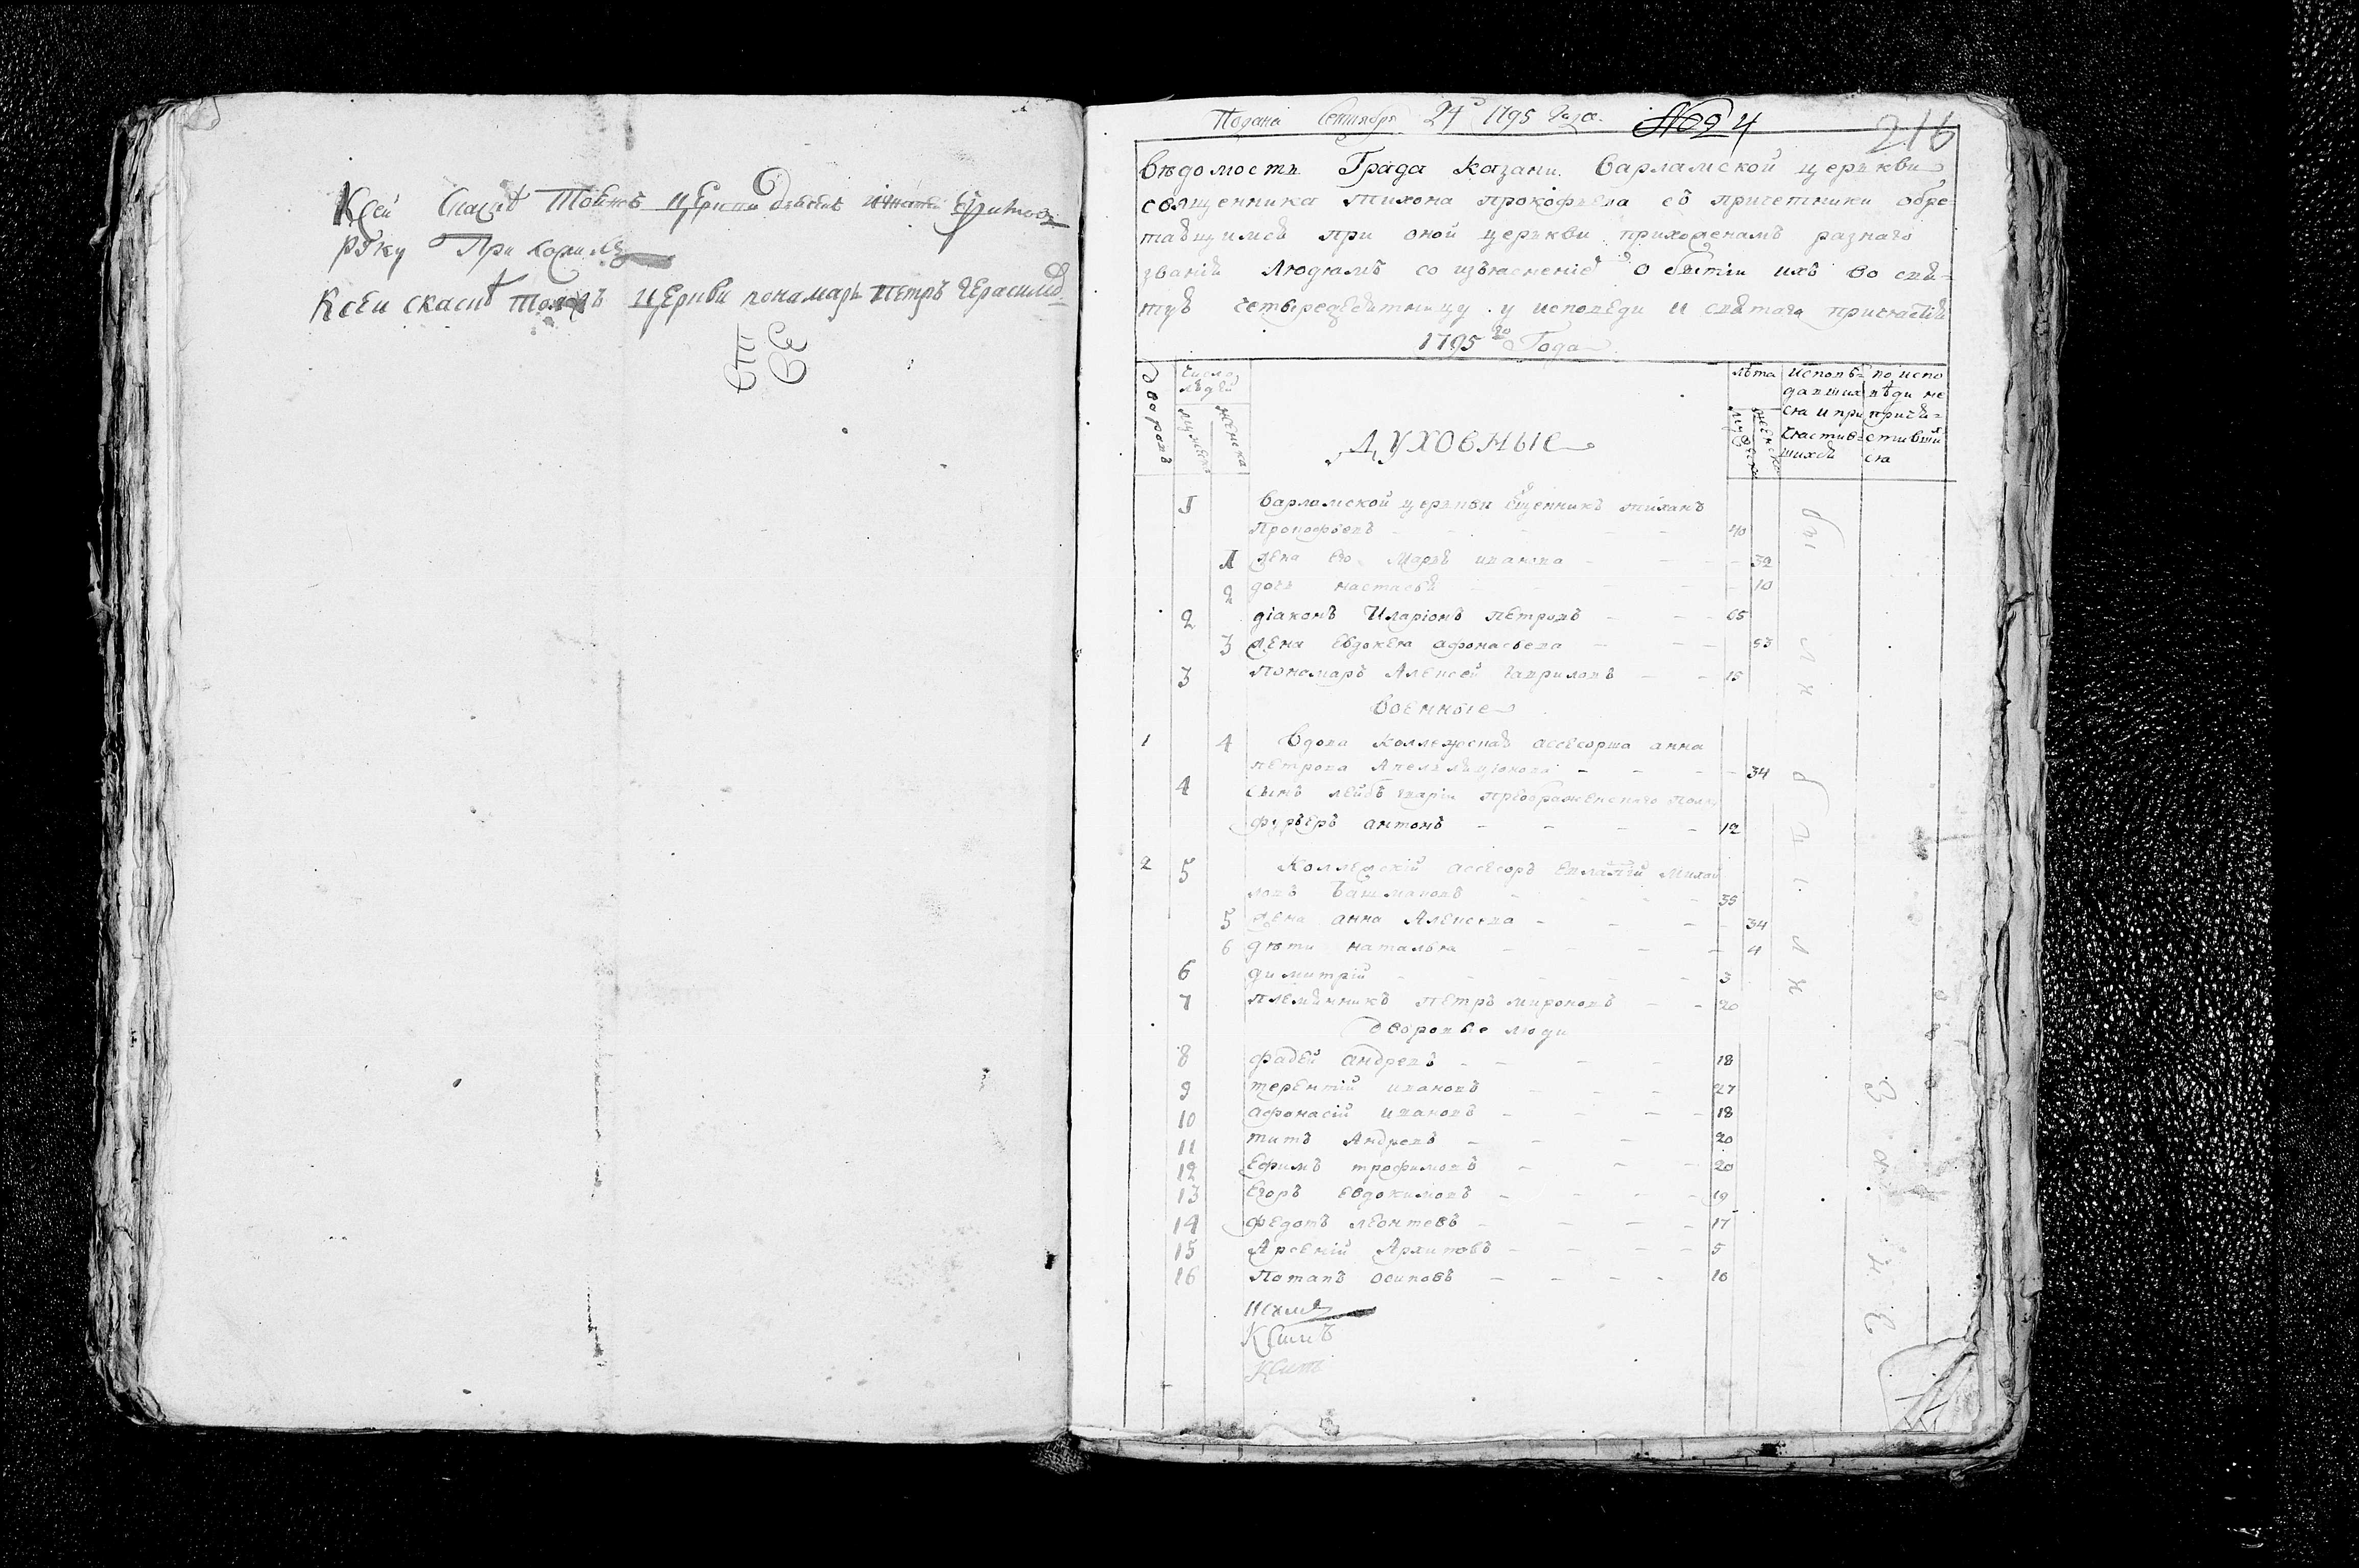 Ксей
руку Приложилъ
Ксеи сказке тояжъ церкви пономарь Петръ Герасимовъ
Подана Сентября 24 1795 Года. №2 4
216
Вѣдомость Града Казани Варламской церькви
священника Тихона Прокофьева съ причетники обре
тающимся при оной церькви прихожанамъ разнаго
званія людямъ со изъясненіемъ о бытіи ихъ во свя-
тую четыредесятницу у исповеди и святаго причастія
1795го Года
Дворовъ
Число людей
мужеска
женска
ДУХОВНЫЕ
лѣта
мужеска
женска
исповѣ-
давших
ся и при
частив-
шихся
по испо
вѣди не
прича-
стивших
ся
1 Варламской церькви священникъ Тиханъ
Прокофьевъ - - - - 40
1 жена его Марья иванова - - - 32
2 дочь настасья - - - 10
2 діаконъ Иларіонъ Петровъ - - - 65
3 жена Евдокея афонасьева - - - 53
3 Пономарь Алексей гавриловъ - - 15
Военные
1 4 Вдова коллежская ассесорша анна
петрова - - - 34
4 сынъ лейбъ гвардіи преображенскаго полку
фурьеръ антонъ - - - - 12
2 5 Коллежскій ассесоръ Евлампій Михай
ловъ Башмаковъ - - - - 35
5 жена анна Алексева - - - - 34
6 дѣти наталья - - - - 4
6 димитрій - - - - 3
7 племянникъ петръ мироновъ - - 20
дворовые люди
8 фадей андревъ - - - - 18
9 терентій ивановъ - - - 27
10 афонасій ивановъ - - - - 18
11 титъ Андревъ - - - 20
12 Ефимъ трофимовъ - - - 20
13 Егоръ Евдокимовъ - - - - 19
14 федотъ леонтевъ - - - - 17
15 Арсеній Архиповъ - - - - 5
16 Потапъ осиповъ - - - - 16
были
были